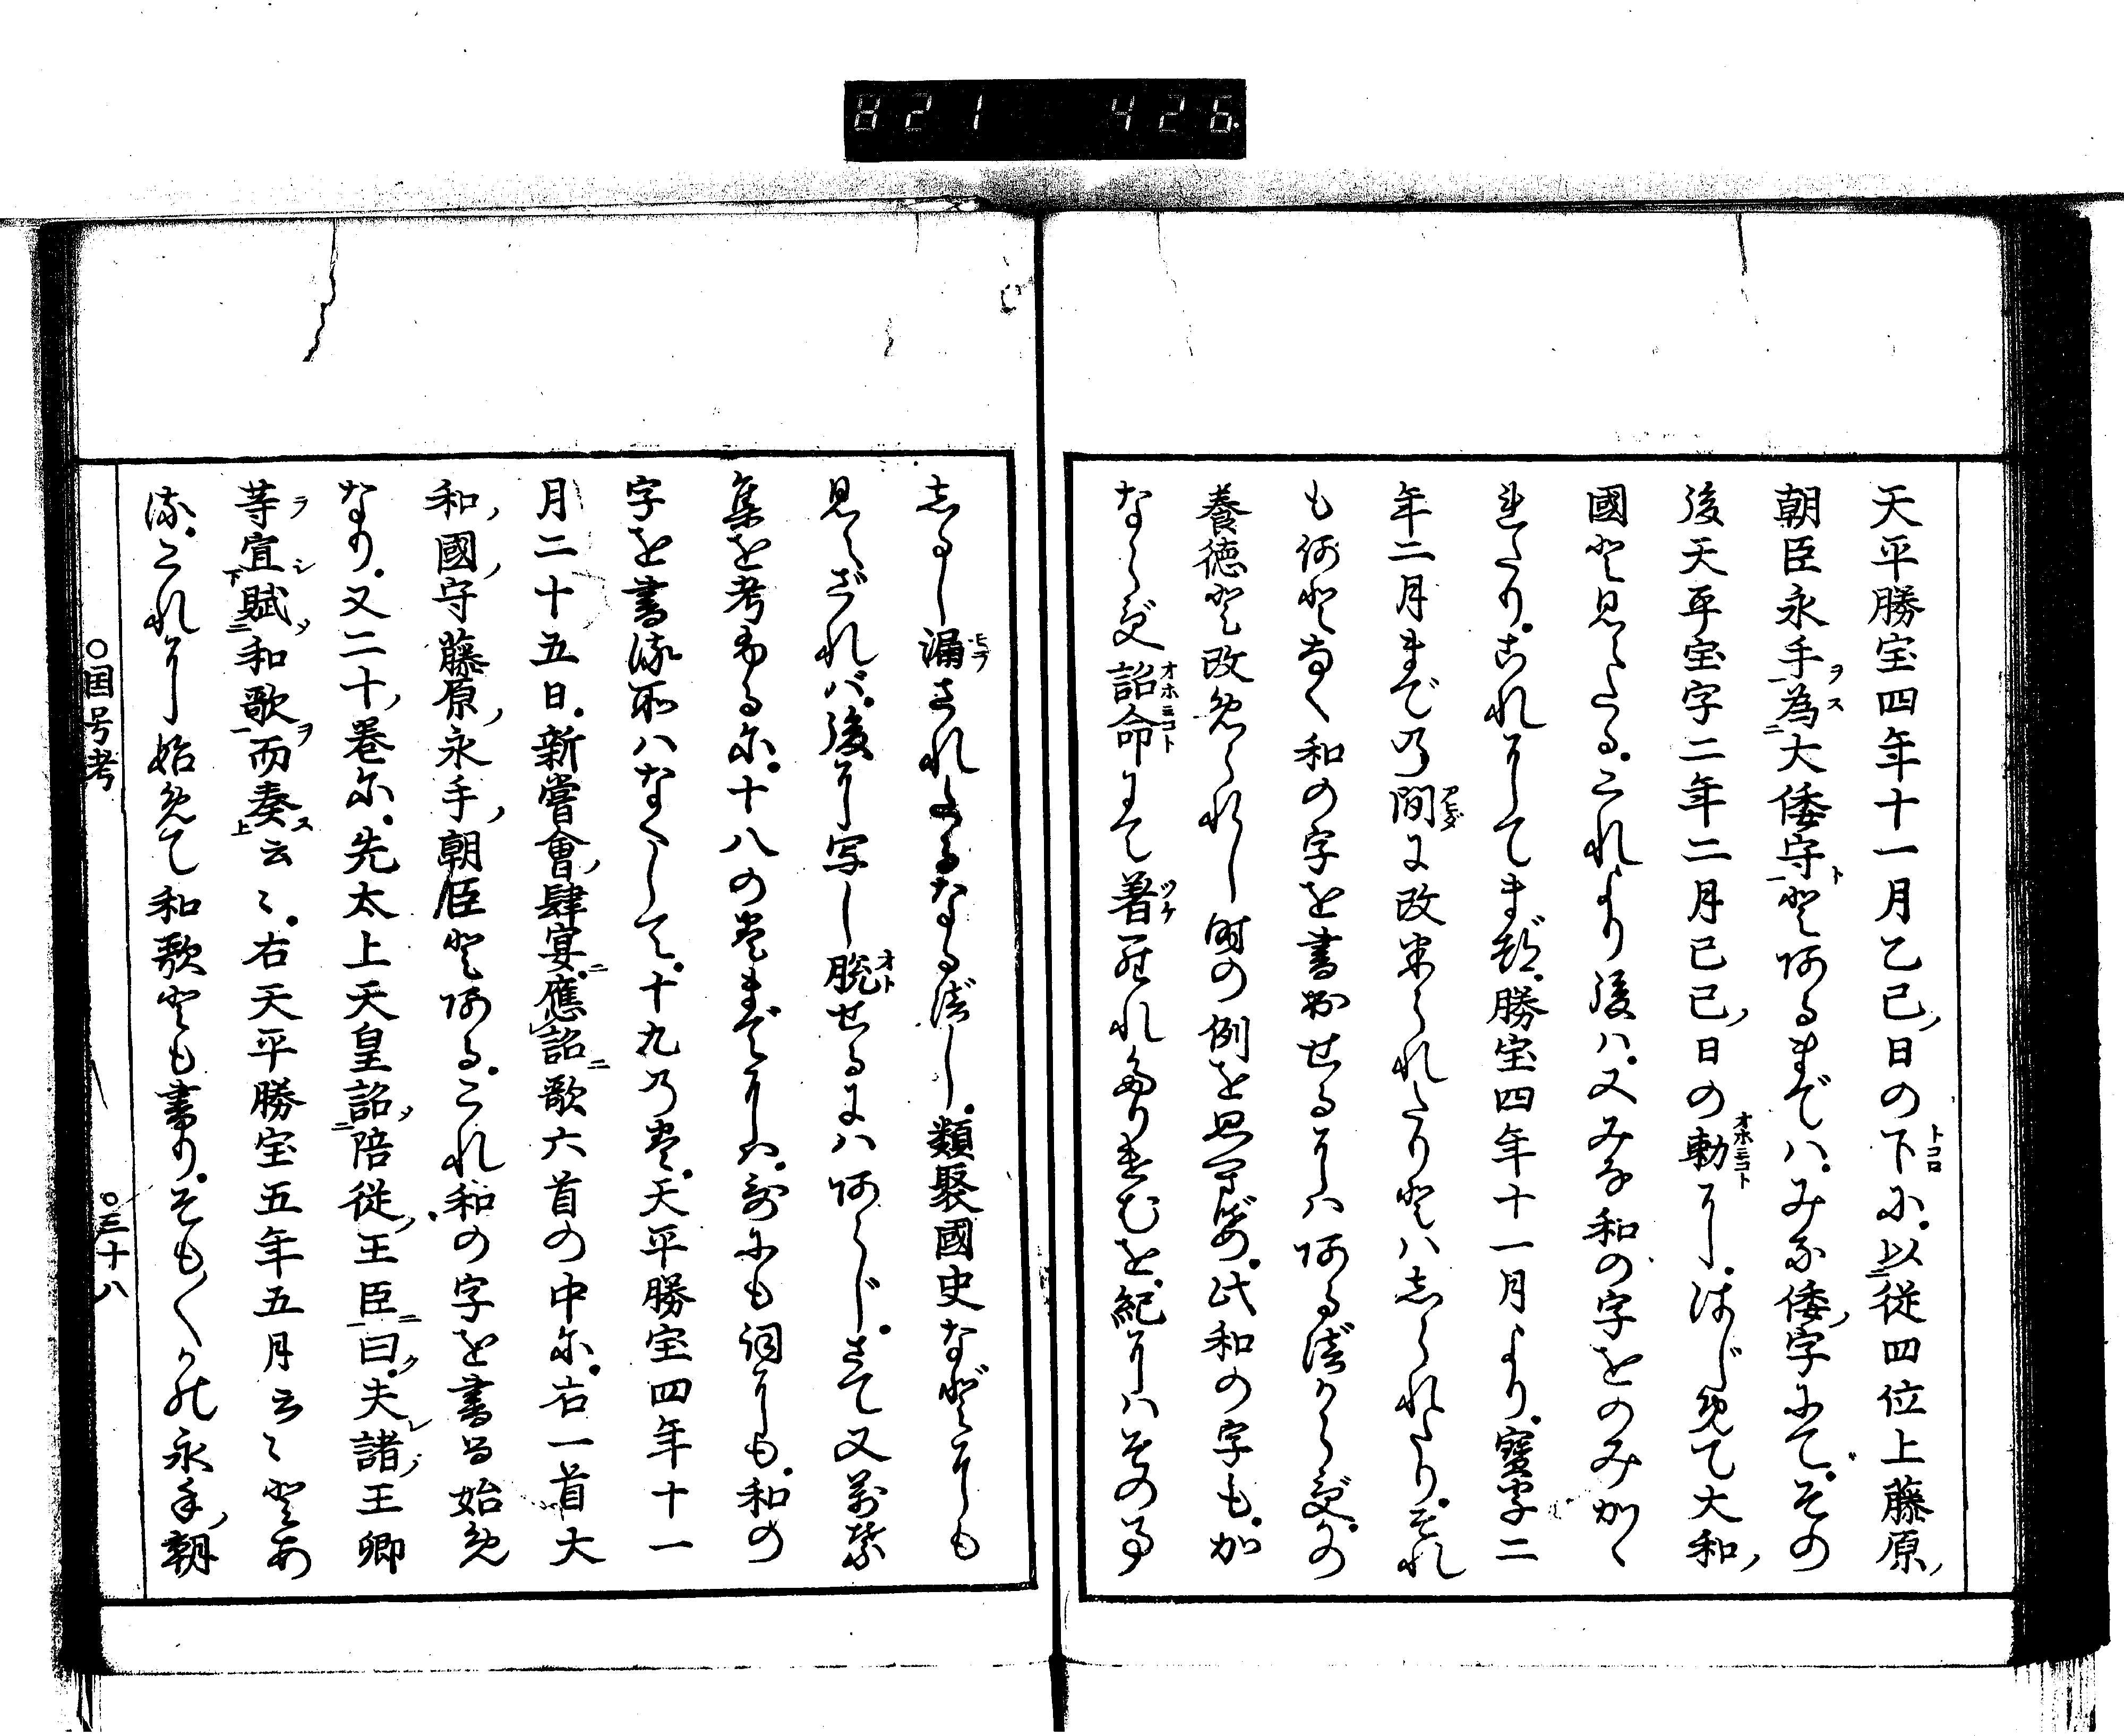 821 426
天平勝宝四年十一月乙已ノ日の下に。以従四位上藤原ノ
朝臣永手為大倭守とあるまでハ。みな倭ノ字にて。その
後天平宝字二年二月已已ノ日の勅に。はじめて大和ノ
國と見えたる。これより後ハ。又みな和の字をのみかゝ
れたり。これによりてまづ。勝宝四年十一月より。寶字二
年二月までの間に改められたりとハしられたり。それ
も何となく和の字を書出せるにハあるべからず。かの
養徳と改められし時の例を思ふに。此和の字も。か
ならず詔命にて著されたりけむを。紀にハその事
しるし漏されたるなるべし。類聚國史などにも
見えざれバ。後に写し脱せるにハあらじ。さて又萬葉
集を考ふるに。十八の巻までにハ。歌にも詞にも。和の
字を書る所ハなくして。十九の巻。天平勝宝四年十一
月二十五日。新嘗會ノ肆宴應詔歌六首の中に。右一首大
和ノ國ノ守藤原ノ永手ノ朝臣とある。これ和の字を書る始め
なり。又二十ノ巻に。先太上天皇詔陪従ノ王臣曰。夫諸王卿
等宜賦和歌而奏云々。右天平勝宝五年五月云々とあ
る。これに始めて和歌とも書り。そも〳〵かの永手ノ朝
○国号考 ○三十八